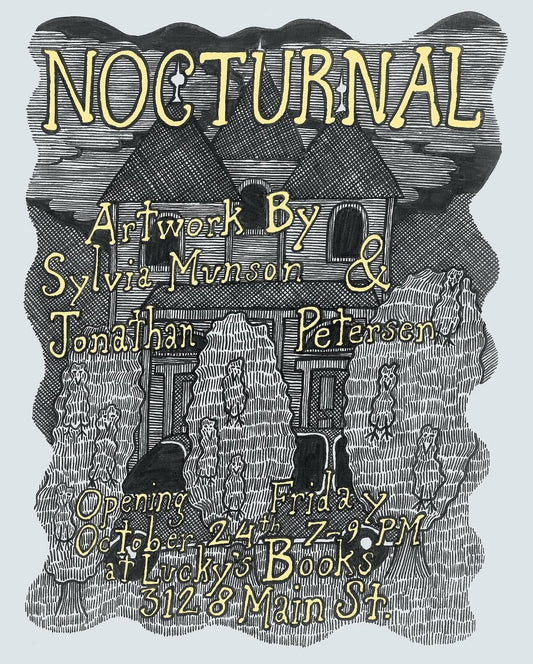 NOCTURNAL
Artwork By
Sylvia Munson &
Jonathan Petersen
Opening Friday
October 24th 7-9 PM
at Lucky's Books
3128 Main St.